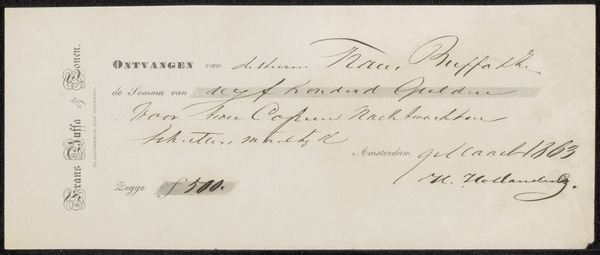 Frans Buffa & Zonen.
ONTVANGEN van de Heeren Frans Buffa & Zn
de Somma van vijf honderd Gulden
Voor twee Copien Nachtwacht en
Schuttersmaaltijd
Amsterdam, 9 Maart 1863
Zegge f 500.
H. Hollander Cz.